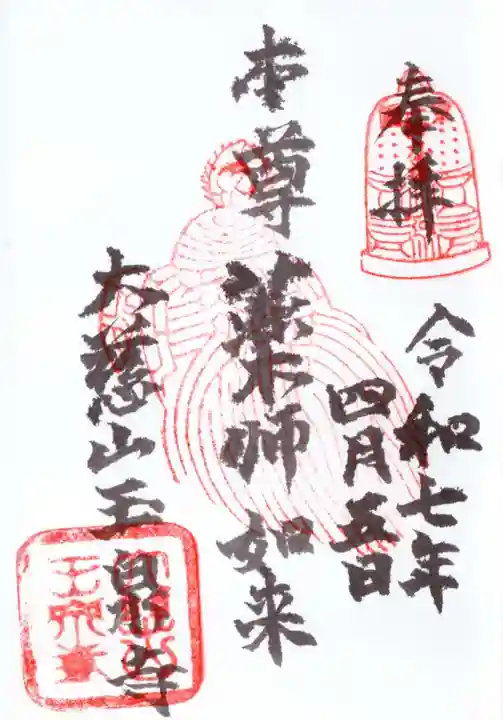 奉拝
令和七年
四月五日
本尊薬師如来
大慈山玉泉寺